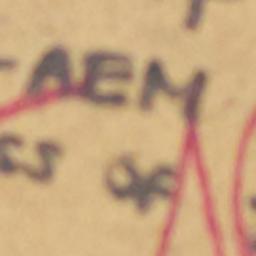 -AEM
ss of